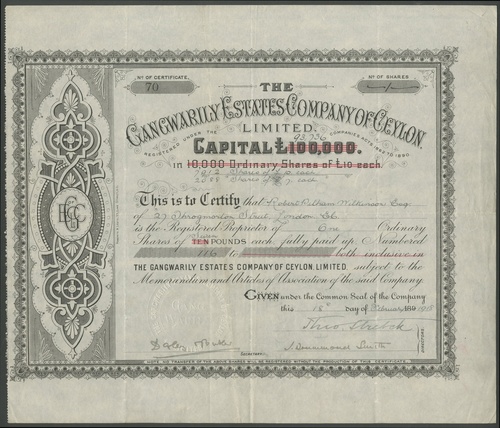 No OF CERTIFICATE.
70
No OF SHARES
1
THE
GANGWARILY ESTATES COMPANY OF CEYLON
LIMITED.
REGISTERED UNDER THE COMPANIES ACTS 1862 TO 1890.
93,736
CAPITAL £100,000.
in 10,000 Ordinary Shares of £10 each.
7912 Shares of
2088 Shares of £7 each
This is to Certify that Robert Pelham Wilkinson Esq
of 27 Throgmorton Street London
is the Registered Proprietor of One Ordinary
Shares of TEN POUNDS each, fully paid up Numbered
116 to both inclusive in
THE GANGWARILY ESTATES COMPANY OF CEYLON, LIMITED, subject to the
Memorandum and Articles of Association of the said Company
GIVEN under the Common Seal of the Company
this 18th day of February
DIRECTORS
J. Drummond Smith
SECRETARY.
NOTE, NO TRANSFER OF THE ABOVE SHARES WILL BE REGISTERED WITHOUT THE PRODUCTION OF THIS CERTIFICATE.